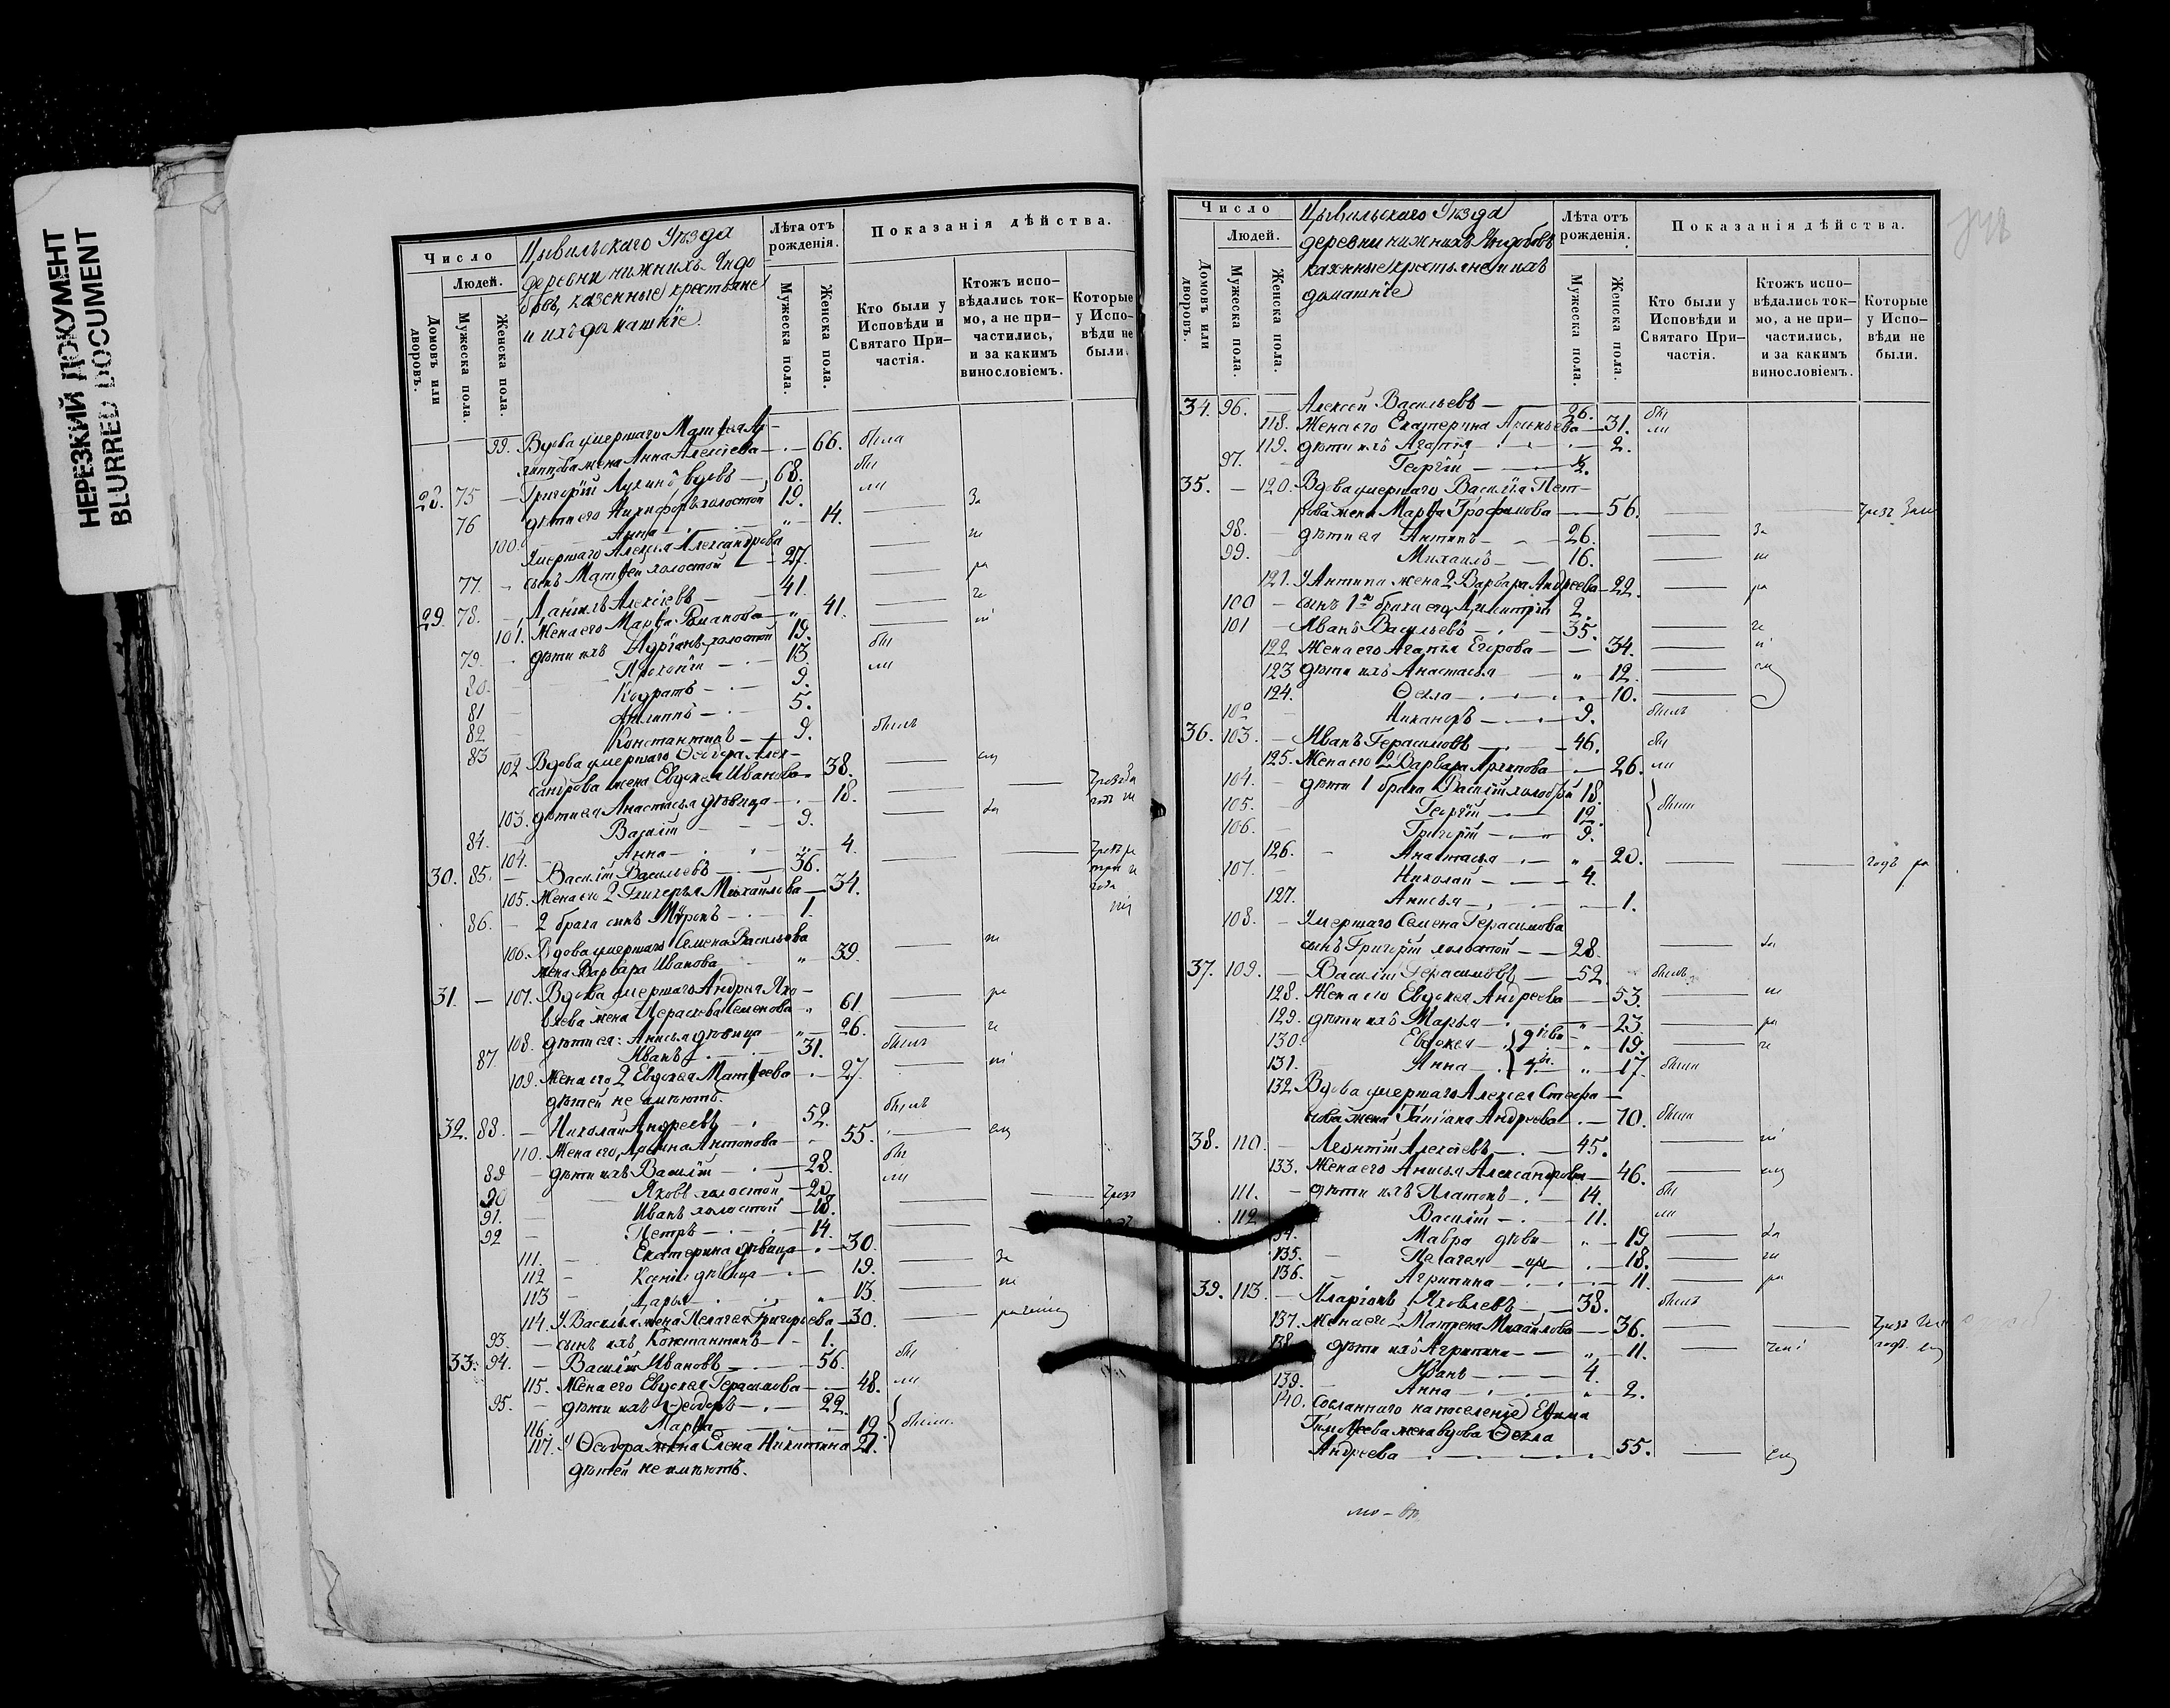 НЕРЕЗКИЙ ДОКУМЕНТ
BLURRED DOCUMENT
Число
Людей.
Домовъ или дворовъ.
Мужеска пола.
Женска пола.
Цывильскаго Уѣзда
деревни нижнихъ Индо
бовъ, казенные крестьяне
и ихъ домашніе.
Лѣта отъ рожденія.
Мужеска пола.
Женска пола.
Показанія дѣйства.
Кто были у Исповѣди и Святаго Причастія.
Ктожъ исповѣдались токмо, а не причастились, и за какимъ винословіемъ.
Которые у Исповѣди не были.
99. Вдова умершаго Матвея Ар-
хиппова жена Анна Алексіева 66. была
28. 75 Григорій Лукинъ вдовъ 68. бы
76 дѣти его Никифоръ холостой 19. ли
100. Анна 14. За
Умершаго Алексея Александрова
77. сынъ Матвей холостой 27.
29. 78. Даніилъ Алексіевъ 41.
101. Жена его Марѳа Романова 41.
79. дѣти ихъ Курганъ холостой 19. бы
80. Прокопій 13. ли
81 Кодратъ 9.
82 Филиппъ 5.
83 Константинъ 9. былъ
102 Вдова умершаго Ѳеодора Алек-
сандрова жена Евдокея Иванова 38.
103. дѣти ея Анастасья дѣвица 18.
84. Василій 9.
104. Анна 4.
30. 85. Василій Васильевъ 36.
105. Жена его 2 Гликерья Михайлова 34.
86. 2 брака сынъ Мѵронъ 1.
106. Вдова умершаго Семена Васильева
жена Варвара Иванова 39.
31. 107. Вдова умершаго Андрея Яко-
влева жена Параскева Семенова 61
108. дѣти ея: Анисья дѣвица 26.
87. Иванъ 31. былъ
109. Жена его 2 Евдокея Матвеева 27.
дѣтей не имѣютъ.
32. 88. Николай Андреевъ 52. былъ
110. Жена его, Арина Антонова 55.
89 дѣти ихъ Василій 28. бы
90 Яковъ холостой 20 ли
91. Иванъ холостой 18.
92 Петръ 14.
111. Екатерина дѣвица 30.
112 Ксенія дѣвица 19.
113 Дарья 13.
114. У Василья жена Пелагея Григорьева 30.
93. сынъ ихъ Константинъ 1.
33. 94. Василій Ивановъ 56. бы
115. Жена его Евдокея Герасимова 48. ли
95. дѣти ихъ Ѳеодоръ 22.
116. Марѳа 19. были.
117. У Ѳеодора жена Елена Никитина 21.
дѣтей не имѣютъ.
Число
Людей.
Домовъ или дворовъ.
Мужеска пола.
Женска пола.
Цывильскаго Уѣзда
деревни нижнихъ Индобовъ
казенные крестьяне и ихъ
домашніе
Лѣта отъ рожденія.
Мужеска пола.
Женска пола.
Показанія дѣйства.
Кто были у Исповѣди и Святаго Причастія.
Ктожъ исповѣдались токмо, а не причастились, и за какимъ винословіемъ.
Которые у Исповѣди не были.
34. 96. Алексей Васильевъ 26. бы
118. Жена его Екатерина 31. ли
119. дѣти ихъ Агапія 2.
97. Георгій ½.
35. 120. Вдова умершаго Василія Пет-
рова жена Марѳа Трофимова 56.
98. дѣти ея Антипъ 26. За
99. Михаилъ 16.
121. У Антипа жена 2 Варвара Андреева 22.
100 сынъ 1го брака его Димитрій 2.
101 Иванъ Васильевъ 35.
122 Жена его Агапія Егорова 34.
123 дѣти ихъ Анастасья 12.
124. Ѳекла 10.
102 Никаноръ 9. былъ
36. 103. Иванъ Герасимовъ 46. бы
125. Жена его 2 Варвара Архипова 26. ли
104. дѣти 1 брака Василій холостой 18.
105. Георгій 12. были
106. Григорій 9.
126. Анастасья 20. годъ
107. Николай 4.
127. Анисья 1.
108. Умершаго Семена Герасимова
сынъ Григорій холостой 28.
37. 109. Василій Герасимовъ 52. былъ
128. Жена его Евдокея Андреева 53.
129. дѣти ихъ Марья 23.
130. Евдокея дѣви 19.
131. Анна цы 17. были
132. Вдова умершаго Алексея Стефа-
нова жена Татіана Андреева 70. была
38. 110. Леонтій Алексіевъ 45.
133. Жена его Анисья Александрова 46.
111. дѣти ихъ Платонъ 14. бы
112 Василій 11. ли
134. Мавра дѣви 19
135. Пелагея цы 18.
136. Агрипина 11.
39. 113. Иларіонъ Яковлевъ 38. былъ
137. Жена его 2 Матрена Михайлова 36.
138. дѣти ихъ Агрипина 11.
Иванъ 4.
139. Анна 2.
140. Сосланнаго на поселеніе Евѳима
Тимоѳеева жена вдова Ѳекла
Андреева 55.